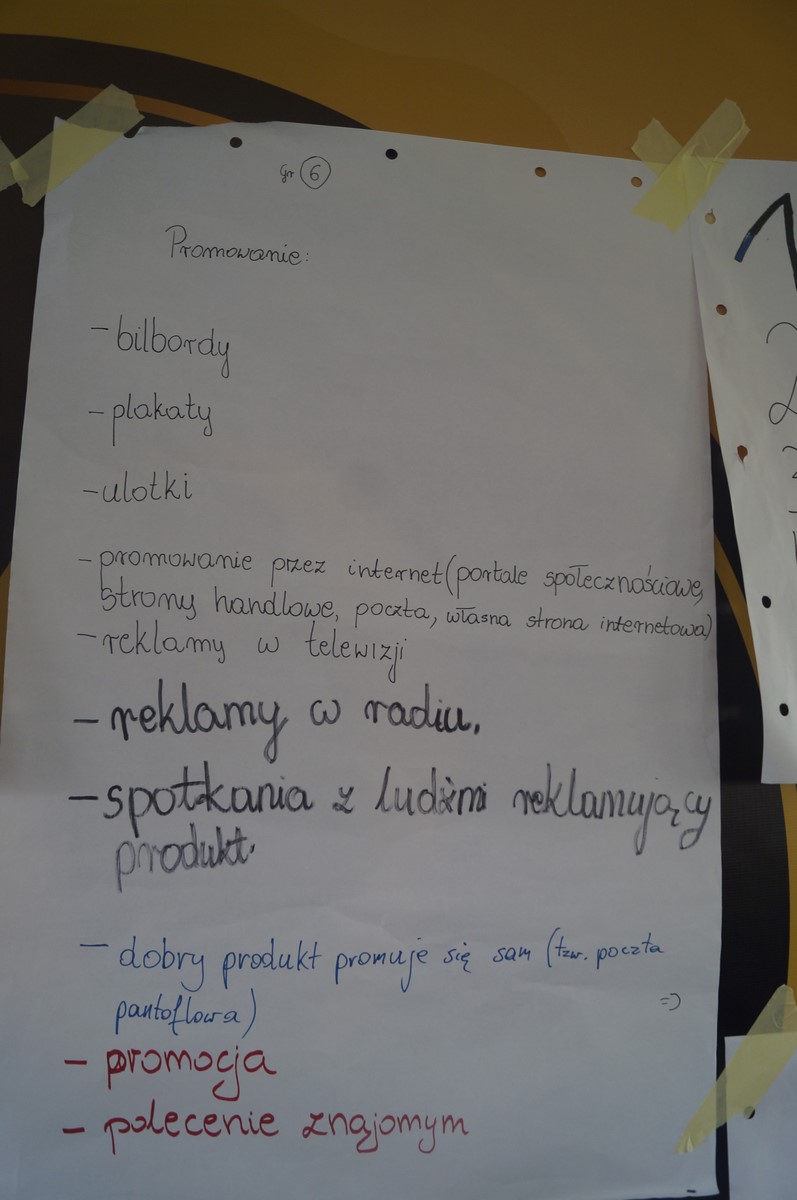 gr 6
Promowanie:
- bilbordy
- plakaty
- ulotki
- promowanie przez internet (portale społecznościowe,
strony handlowe, poczta, własna strona internetowa)
- reklamy w telewizji
- reklamy w radiu.
- spotkania z ludźmi reklamujący
produkt.
- dobry produkt promuje się sam (tzw. poczta
pantoflowa) =)
- promocja
- polecenie znajomym